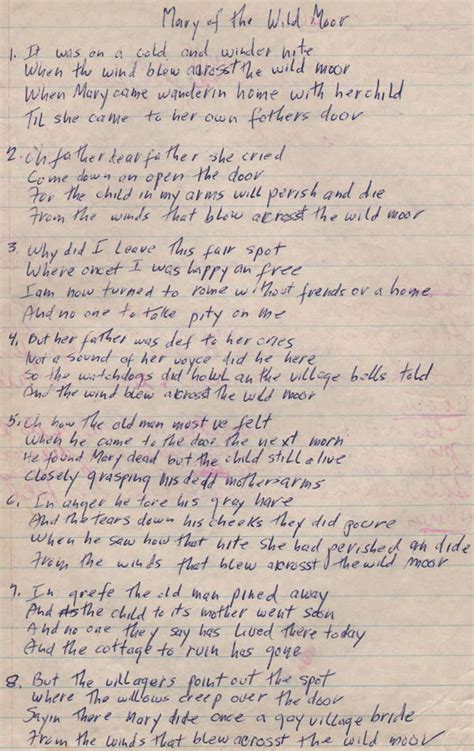 Mary of the Wild Moor
1. It was on a cold and winder nite
When the wind blew acrosst the wild moor
When Mary came wanderin home with her child
Til she came to her own fathers door
2. Oh father dear father she cried
Come down an open the door
For the child in my arms will perish and die
From the winds that blew acrosst the wild moor
3. Why did I leave this fair spot
Where oncet I was happy an free
I am now turned to rome without frends or a home
And no one to take pity on me
4. But her father was def to her cries
Not a sound of her voyce did he here
So the watchdogs did howl an the village bells told
And the wind blew acrosst the wild moor
5. Oh how the old man most ve felt
When he came to the door the next morn
He found Mary dead but the child still alive
Closely grasping his dedd mothers arms
6. In anger he tore his gray hare
And the tears down his cheeks they did poure
When he saw how that nite she had perished an dide
From the winds that blew acrosst the wild moor
7. In grefe the old man pined away
And the child to its mother went soon
And no one they say has lived there today
And the cottage to ruin has gone
8. But the villagers point out the spot
where the willows creep over the door
Sayin there Mary dide once a gay village bride
From the winds that blew acrosst the wild moor